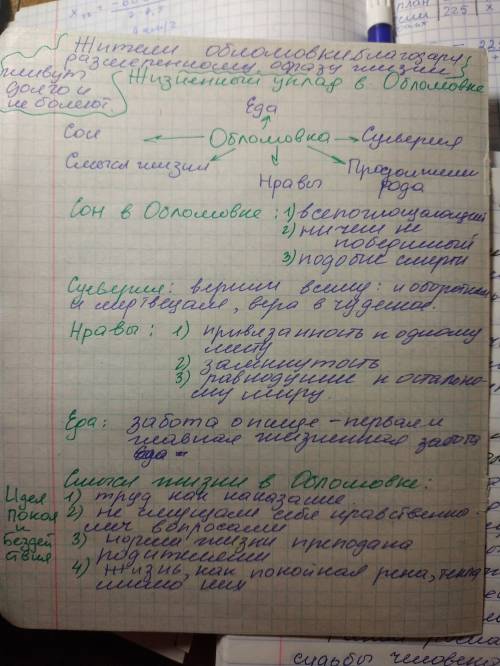 Жители обломовки благодаря
размеренному образу жизни
живут
долго и
не болеют
Жизненный уклад в Обломовке
Еда
Сон
Обломовка
Суеверия
Смысл жизни
Нравы
Продолжение
рода
Сон в Обломовке: 1) всепоглощающий
2) ничем не
победимый
3) подобие смерти
Суеверия: верили всему: и оборотням
и мертвецам, вера в чудеса.
Нравы: 1) привязанность к одному
месту
2) замкнутость
3) равнодушие к остально-
му миру.
Еда: забота о пище - первая и
главная жизненная забота
Смысл жизни в Обломовке:
Идея
покоя
и
бездей
ствия
1) труд как наказание
2) не смущали себя нравственны-
ми вопросами
3) норма жизни преподана
родителями
4) Жизнь, как покойная река, текла
мимо них
план
225
x
судьбы человека